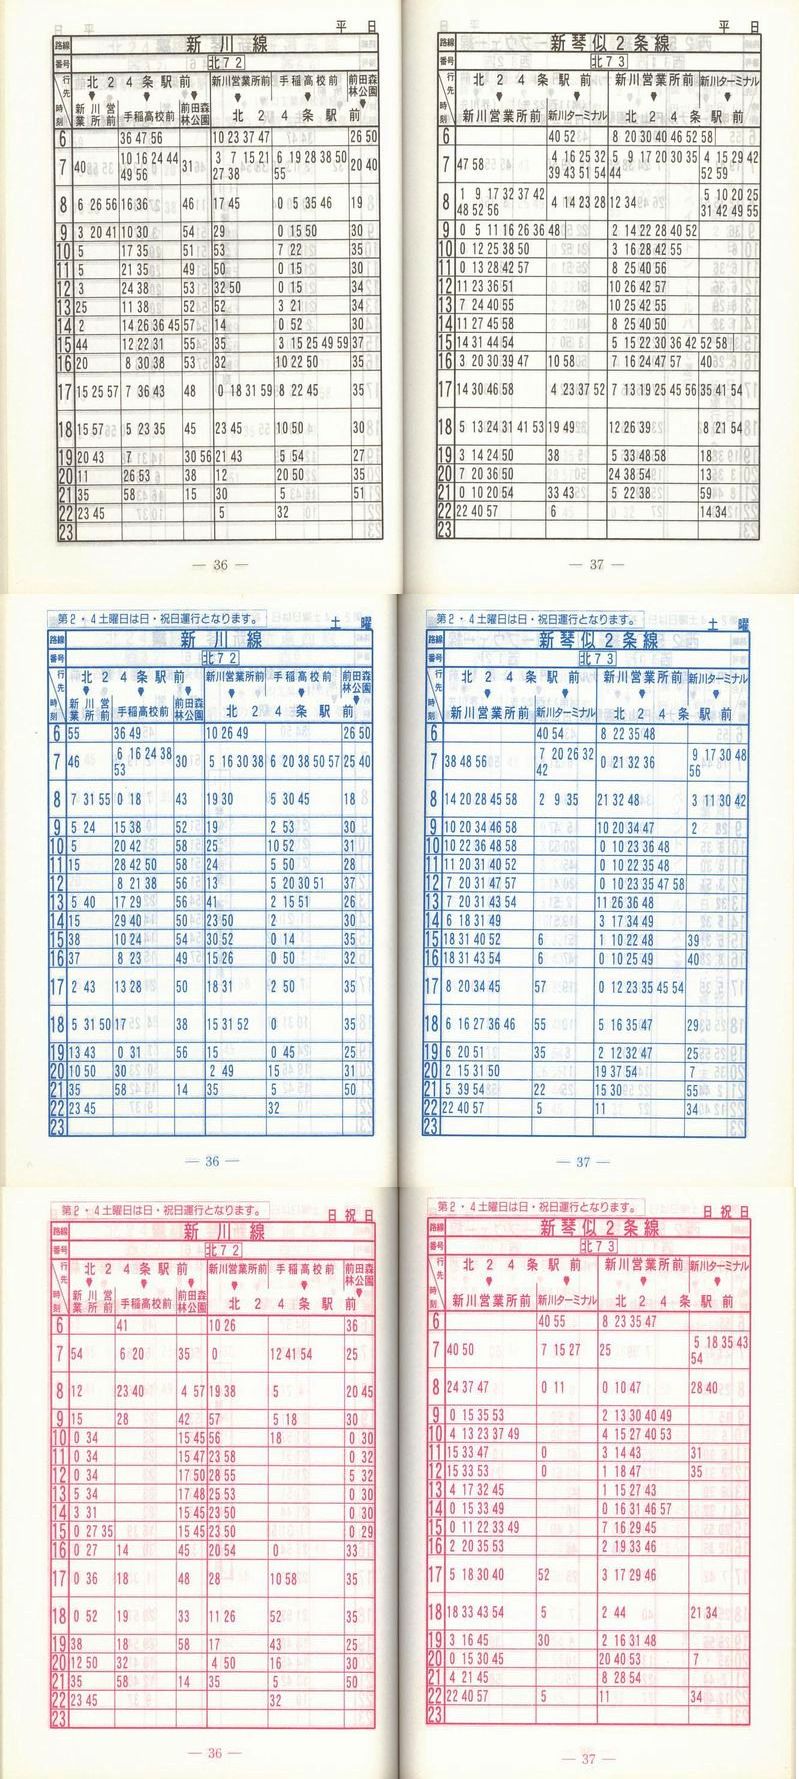 平 日
路線 新 川 線
番号 北72
行先 北 2 4 条 駅 前 新川営業所前 手稲高校前 前田森林公園
時刻 新川営業所前 手稲高校前 前田森林公園 北 2 4 条 駅 前
6 36 47 56 10 23 37 47 26 50
7 40 10 16 24 44 49 56 31 3 7 15 21 27 38 6 19 28 38 50 55 20 40
8 6 26 56 16 36 46 17 45 0 5 35 46 19
9 3 20 41 10 30 54 29 0 15 50 30
10 5 17 35 51 53 7 22 35
11 5 21 35 49 50 0 15 30
12 3 24 38 53 32 50 0 15 34
13 25 11 38 52 52 3 21 34
14 2 14 26 36 45 57 14 0 52 30
15 44 12 22 31 55 35 3 15 25 49 59 37
16 20 8 30 38 53 32 10 22 50 35
17 15 25 57 7 36 43 48 0 18 31 59 8 22 45 35
18 15 57 5 23 35 45 23 45 10 50 30
19 20 43 7 30 56 21 43 5 54 27
20 11 26 53 38 12 20 50 35
21 35 58 15 30 5 51
22 23 45 5 32
23
— 36 —
平 日
路線 新琴似2条線
番号 北73
行先 北 2 4 条 駅 前 新川営業所前 新川ターミナル
時刻 新川営業所前 新川ターミナル 北 2 4 条 駅 前
6 40 52 8 20 30 40 46 52 58
7 47 58 4 16 25 32 39 43 51 54 5 9 17 20 30 35 44 4 15 29 42 52 59
8 1 9 17 32 37 42 48 52 56 4 14 23 28 12 34 5 10 20 25 31 42 49 55
9 0 5 11 16 26 36 48 2 14 22 28 40 52
10 0 12 25 38 50 3 16 28 42 55
11 0 13 28 42 57 8 25 40 56
12 11 23 36 51 10 26 42 57
13 7 24 40 55 10 25 42 55
14 11 27 45 58 8 25 40 50
15 14 31 44 54 5 15 22 30 36 42 52 58
16 3 20 30 39 47 10 58 7 16 24 47 57 40
17 14 30 46 58 4 23 37 52 7 13 19 25 45 56 35 41 54
18 5 13 24 31 41 53 19 49 12 26 39 8 21 54
19 3 14 24 50 38 5 33 48 58 18
20 7 20 36 50 24 38 54 13
21 0 10 20 54 33 43 5 22 38 59
22 22 40 57 6 14 34
23
— 37 —
第2・4土曜日は日・祝日運行となります。 土 曜
路線 新 川 線
番号 北72
行先 北 2 4 条 駅 前 新川営業所前 手稲高校前 前田森林公園
時刻 新川営業所前 手稲高校前 前田森林公園 北 2 4 条 駅 前
6 55 36 49 10 26 49 26 50
7 46 6 16 24 38 53 30 5 16 30 38 6 20 38 50 57 25 40
8 7 31 55 0 18 43 19 30 5 30 45 18
9 5 24 15 38 52 19 2 53 30
10 5 20 42 58 25 10 52 31
11 15 28 42 50 58 24 5 50 28
12 8 21 38 56 13 5 20 30 51 37
13 5 40 17 29 56 41 2 15 51 26
14 15 29 40 50 23 50 2 30
15 38 10 24 54 30 52 0 14 35
16 37 8 23 49 15 26 0 50 32
17 2 43 13 28 50 18 31 2 50 35
18 5 31 50 17 38 15 31 52 0 35
19 13 43 0 31 56 15 0 45 25
20 10 50 30 2 49 15 31
21 35 58 14 35 5 50
22 23 45 32
23
— 36 —
第2・4土曜日は日・祝日運行となります。 土 曜
路線 新琴似2条線
番号 北73
行先 北 2 4 条 駅 前 新川営業所前 新川ターミナル
時刻 新川営業所前 新川ターミナル 北 2 4 条 駅 前
6 40 54 8 22 35 48
7 38 48 56 7 20 26 32 42 0 21 32 36 9 17 30 48 56
8 14 20 28 45 58 2 9 35 21 32 48 3 11 30 42
9 10 20 34 46 58 10 20 34 47 2
10 10 22 36 48 58 0 10 23 36 48
11 11 20 31 40 52 0 10 22 35 48
12 7 20 31 47 57 0 10 23 35 47 58
13 7 20 31 43 54 11 26 36 48
14 6 18 31 49 3 17 34 49
15 18 31 40 52 6 1 10 22 48 39
16 18 31 43 54 6 0 10 25 49 40
17 8 20 34 45 57 0 12 23 35 45 54
18 6 16 27 36 46 55 5 16 35 47 29
19 6 20 51 35 2 12 32 47 25
20 2 15 31 50 19 37 54 7
21 5 39 54 22 15 30 55
22 22 40 57 5 11 34
23
— 37 —
第2・4土曜日は日・祝日運行となります。 日 祝 日
路線 新 川 線
番号 北72
行先 北 2 4 条 駅 前 新川営業所前 手稲高校前 前田森林公園
時刻 新川営業所前 手稲高校前 前田森林公園 北 2 4 条 駅 前
6 41 10 26 36
7 54 6 20 35 0 12 41 54 25
8 12 23 40 4 57 19 38 5 20 45
9 15 28 42 57 5 18 30
10 0 34 15 45 56 18 0 30
11 0 34 15 47 23 58 0 32
12 0 34 17 50 28 55 5 32
13 5 34 17 48 25 53 0 30
14 3 31 15 45 23 50 0 30
15 0 27 35 15 45 23 50 0 29
16 0 27 14 45 20 54 0 33
17 0 36 18 48 28 10 58 35
18 0 52 19 33 11 26 52 35
19 38 18 58 17 43 25
20 12 50 32 4 50 16 30
21 35 58 14 35 5 50
22 23 45 32
23
— 36 —
第2・4土曜日は日・祝日運行となります。 日 祝 日
路線 新琴似2条線
番号 北73
行先 北 2 4 条 駅 前 新川営業所前 新川ターミナル
時刻 新川営業所前 新川ターミナル 北 2 4 条 駅 前
6 40 55 8 23 35 47
7 40 50 7 15 27 25 5 18 35 43 54
8 24 37 47 0 11 0 10 47 28 40
9 0 15 35 53 2 13 30 40 49
10 4 13 23 37 49 4 15 27 40 53
11 15 33 47 0 3 14 43 31
12 15 33 53 0 1 18 47 35
13 4 17 32 45 1 15 27 43
14 0 15 33 49 0 16 31 46 57
15 0 11 22 33 49 7 16 29 45
16 2 20 35 53 2 19 33 46
17 5 18 30 40 52 3 17 29 46
18 18 33 43 54 5 2 44 21 34
19 3 16 45 30 2 16 31 48
20 0 15 30 45 20 40 53 7
21 4 21 45 8 28 54
22 22 40 57 5 11 34
23
— 37 —